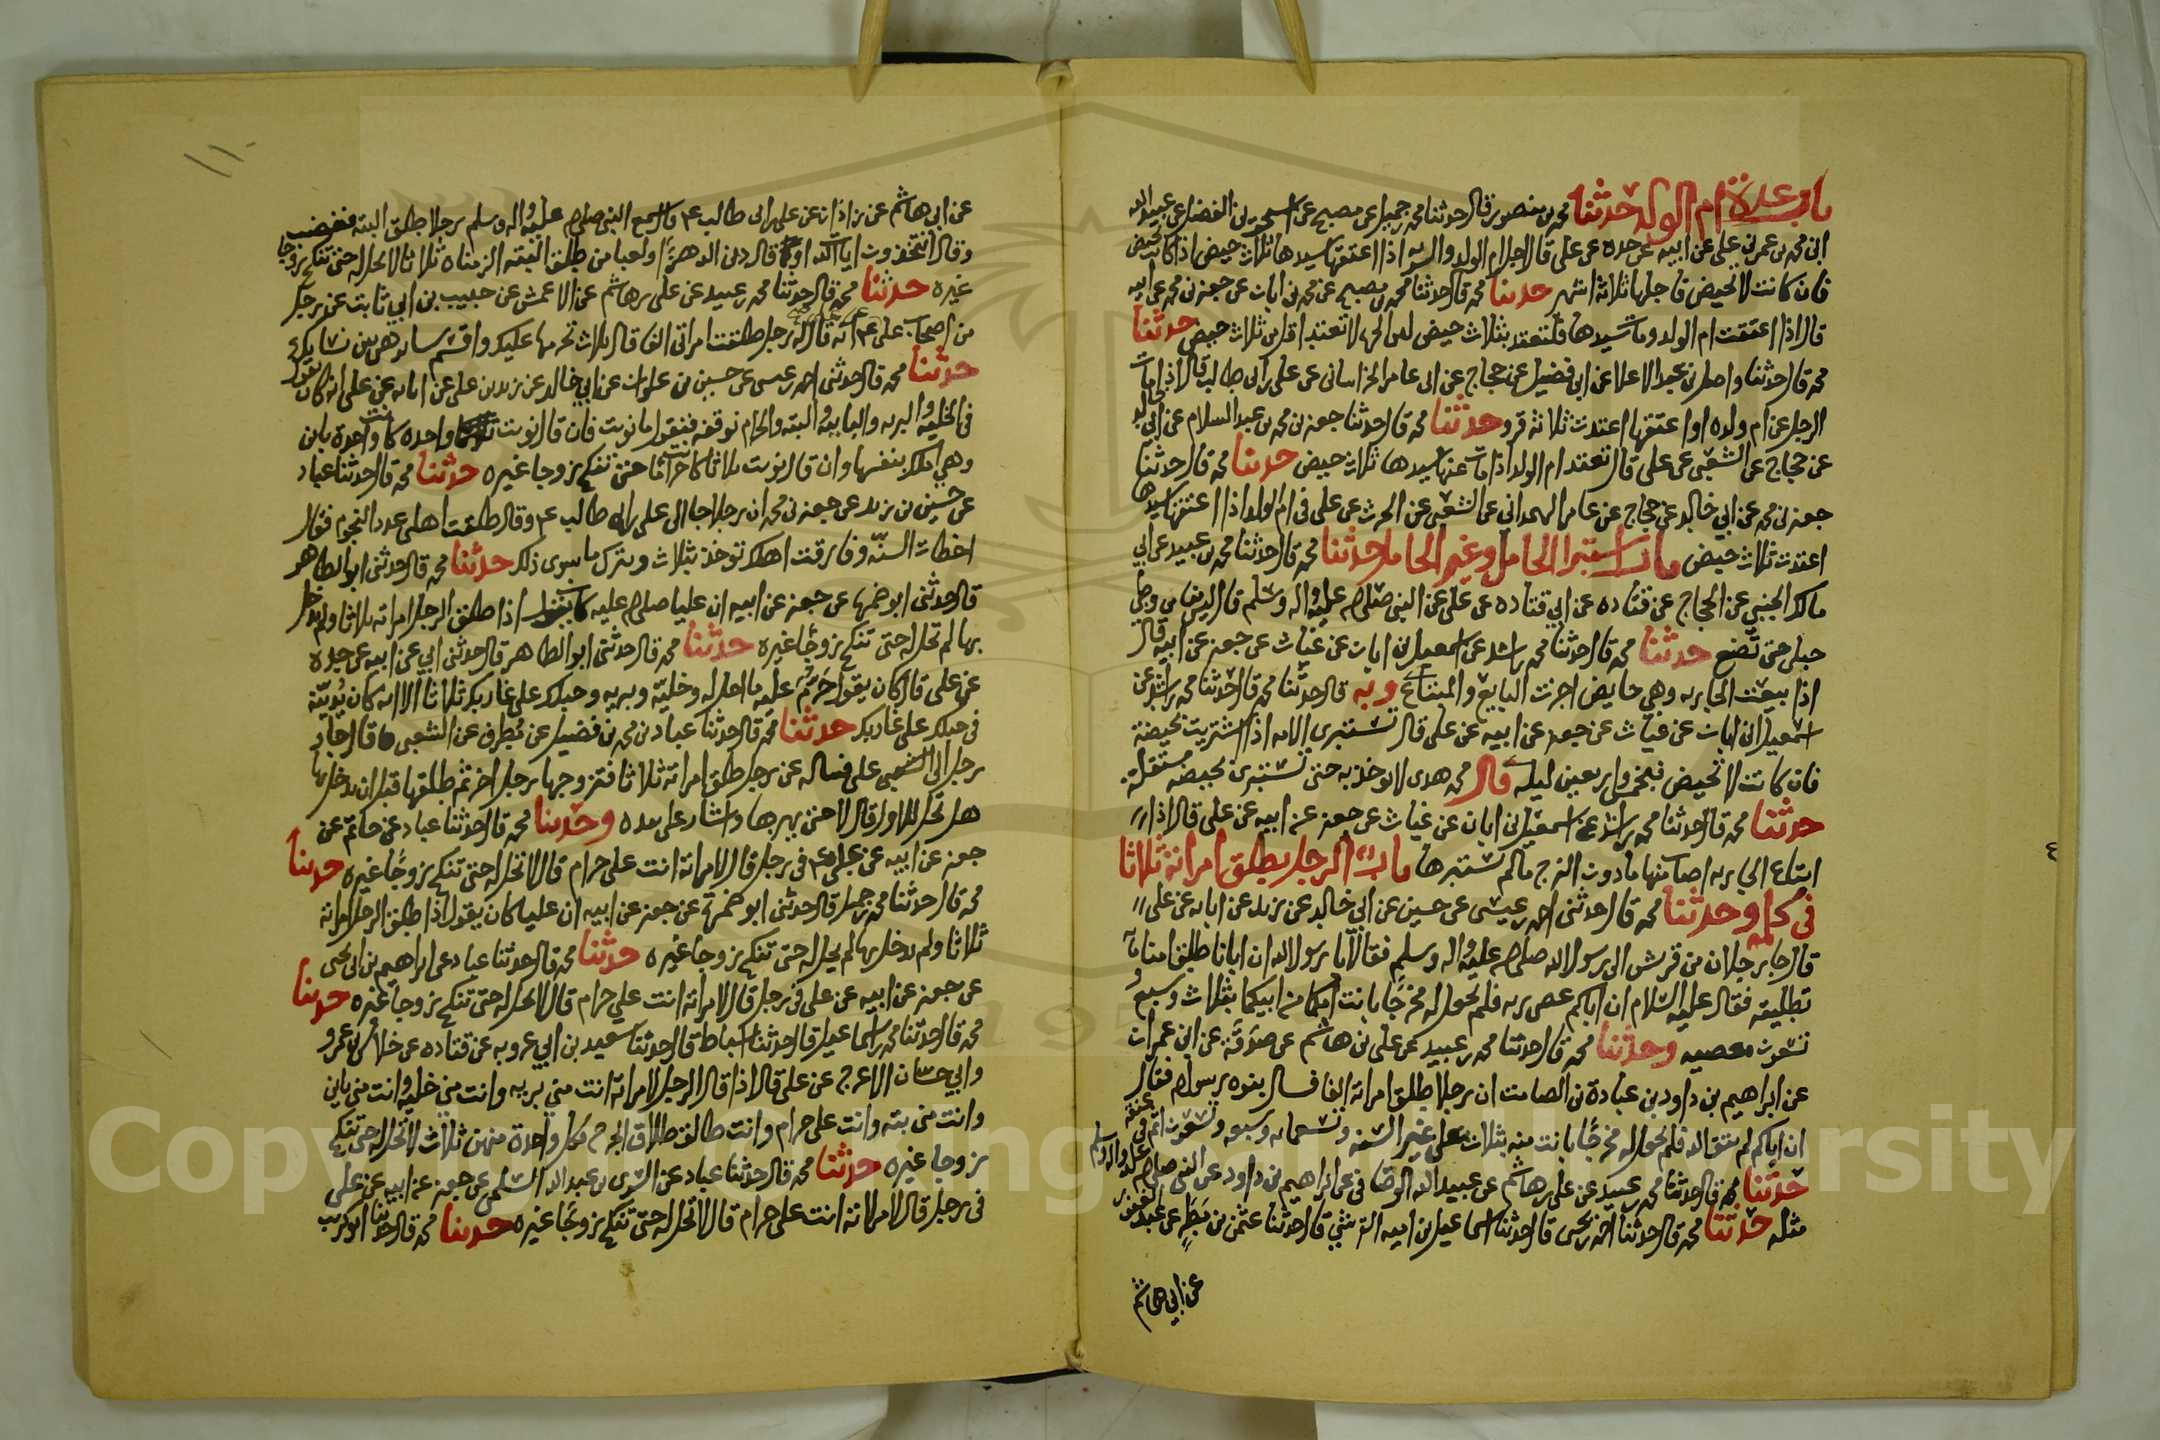 باب عدة ام الولد حدثنا محمد بن منصور قال حدثنا محمد بن جميل عن مصبح عن اسحق بن الفضل عن عبيد الله
ابن محمد بن عمر بن علي عن ابيه عن جده عن علي قال اجل ام الولد والسريه اذا اعتقها سيدها ثلاث حيض اذا كانت تحيض
فان كانت لا تحيض فاجلها ثلاثة اشهر حدثنا محمد قال حدثنا محمد بن مصبح عن محمد بن ابان عن جعفر بن محمد عن ابيه
قال اذا اعتقت ام الولد ومات سيدها فلتعتد بثلاث حيض لا تعتد اقل من ثلاث حيض حدثنا
محمد قال حدثنا واصل بن عبد الاعلا عن ابن فضيل عن حجاج عن ابي عامر الخراساني عن علي بن ابي طالب قال اذا مات
الرجل عن ام ولده او اعتقها اعتدت ثلاثة قرو حدثنا محمد قال حدثنا جعفر بن محمد بن عبد السلام عن ابي خالد
عن حجاج عن الشعبي عن علي قال تعتد ام الولد اذا مات عنها سيدها ثلاث حيض حدثنا محمد قال حدثنا
جعفر بن محمد عن ابي خالد عن حجاج عن عامر الهمداني عن الشعبي عن الحرث عن علي في ام الولد اذا اعتقها سيدها
اعتدت ثلاث حيض باب استبرا الحامل وغير الحامل حدثنا محمد قال حدثنا محمد بن عبيد عن ابي
مالك الجنبي عن الحجاج عن قتاده عن ابي قتاده عن علي عن النبي صلى الله عليه واله وسلم قال ليس منا من وطي
حبلى حتى تضع حدثنا محمد قال حدثنا محمد بن راشد عن اسمعيل بن ابان عن غياث عن جعفر عن ابيه قال
اذا بيعت الجاريه وهي حايض اجزت البايع والمبتاع وبه قال حدثنا محمد قال حدثنا محمد بن راشد عن
اسمعيل بن ابان عن غياث عن جعفر عن ابيه عن علي قال تستبرى الامه اذا اشتريت بحيضة
فان كانت لا تحيض فبخمس واربعين ليله قال محمد هدى لا يوخذ به حتى تستبرى بحيضه مستقبله
حدثنا محمد قال حدثنا محمد بن راشد عن اسمعيل بن ابان عن غياث عن جعفر عن ابيه عن علي قال اذا
ابتاع الجاريه اصاب منها ما دون الفرج ما لم يستبرها باب الرجل يطلق امراته ثلاثا
في كلمه وحدثنا محمد قال حدثني احمد بن عيسى عن حسين عن ابي خالد عن زيد عن ابايه عن علي
قال جا رجلان من قريش الى رسول الله صلى الله عليه واله وسلم فقالا يا رسول الله ان ابانا طلق امنا مايه
تطليقه فقال عليه السلام ان اباكم عصى ربه فلم يجعل له مخرجا بانت امكما من ابيكما بثلاث وسبع
وتسعون معصيه وحدثنا محمد قال حدثنا محمد بن عبيد عن علي بن هاشم عن صدقة عن ابن عمران
عن ابراهيم بن داود بن عبادة بن الصامت ان رجلا طلق امراته الفا فسال بنوه رسول الله فقال
ان اباكم لم يتق الله فلم يجعل له مخرجا بانت منه بثلاث على غير السنه وتسعمايه وسبعه وتسعون اثم في عنقه
حدثنا محمد قال حدثنا محمد بن عبيد عن علي بن هاشم عن عبيد الله الوصافي عن ابراهيم بن داود عن النبي صلى الله عليه واله وسلم
مثله حدثنا محمد قال حدثنا احمد بن يحيى قال حدثنا اسماعيل بن ابيه القرشي قال حدثنا عثمن بن مطر عن عبد الغفور
عن ابي هاشم
١١٠
عن ابي هاشم عن زاذان عن علي بن ابي طالب ع قال سمع النبي صلى الله عليه واله وسلم رجلا طلق البتة فغضب
وقال اتتخذون ايات الله او قال دين الله هزوا ولعبا من طلق البته الزمناه ثلاثا لا تحل له حتى تنكح زوجا
غيره حدثنا محمد قال حدثنا محمد بن عبيد عن علي بن هاشم عن الاعمش عن حبيب بن ابي ثابت عن رجل
من اصحاب علي ع انه قال له رجل طلقت امراتي الفا قال بثلاث تحرمها عليك واقسم سايرهن بين نسايك
حدثنا محمد قال حدثني احمد بن عيسى عن حسين بن علوان عن ابي خالد عن زيد بن علي عن ابايه عن علي انه كان يقول
في الخليه والبريه والباينه والبته والحرام نوقفه فنقول ما نويت فان قال نويت واحده كانت واحدة باين
وهي املك بنفسها وان قال نويت ثلاثا كانت حراما حتى تنكح زوجا غيره حدثنا محمد قال حدثنا عباد
عن حسين بن زيد عن جعفر بن محمد ان رجلا جا الى علي بن ابي طالب ع وقال طلقت اهلي عدد النجوم فقال
اخطات السنة وفارقت اهلك توخذ بثلاث ويترك ما سوى ذلك حدثنا محمد قال حدثني ابو الطاهر
قال حدثني ابو ضمرة عن جعفر عن ابيه ان عليا صلى الله عليه كان يقول اذا طلق الرجل امراته ثلاثا ولم يدخل
بها لم تحل له حتى تنكح زوجا غيره حدثنا محمد قال حدثني ابو الطاهر قال حدثني ابي عن ابيه عن جده
عن علي قال كان يقول حرم عليه ما احل له وخلية وبريه وحبلك على غاربك ثلاثا الا انه كان يدينه
في حبلك على غاربك حدثنا محمد قال حدثنا عباد بن محمد بن فضيل عن مطرف عن الشعبي قال جا
رجل الى علي فساله عن رجل طلق امراته ثلاثا فتزوجها رجل اخر ثم طلقها قبل ان يدخل بها
هل تحل للاول قال لا حتى يهزها واشار علي بيده وحدثنا محمد قال حدثنا عباد عن حاتم عن
جعفر عن ابيه عن علي ع في رجل قال لامراته انت علي حرام قال لا تحل له حتى تنكح زوجا غيره حدثنا
محمد قال حدثنا محمد بن جميل قال حدثني ابو ضمرة عن جعفر عن ابيه ان عليا كان يقول اذا طلق الرجل امراته
ثلاثا ولم يدخل بها لم يحل له حتى تنكح زوجا غيره حدثنا محمد قال حدثنا عباد عن ابراهيم بن ابي يحيى
عن جعفر عن ابيه عن علي في رجل قال لامراته انت علي حرام قال لا تحل له حتى تنكح زوجا غيره حدثنا
محمد قال حدثنا محمد بن اسماعيل قال حدثنا اسباط قال حدثنا سعيد بن ابي عروبه عن قتاده عن خلاس بن عمرو
وابي حسان الاعرج عن علي قال اذا قال الرجل لامراته انت مني بريه وانت مني خليه وانت مني باين
وانت مني بته وانت علي حرام وانت طالق طلاق الحرج فكل واحدة منهن ثلاث لا تحل له حتى تنكح
زوجا غيره حدثنا محمد قال حدثنا عباد عن السري بن عبد الله السلمي عن جعفر عن ابيه عن علي
في رجل قال لامراته انت علي حرام قال لا تحل له حتى تنكح زوجا غيره حدثنا محمد قال حدثنا ابو كريب
Copyright © King Saud University
195